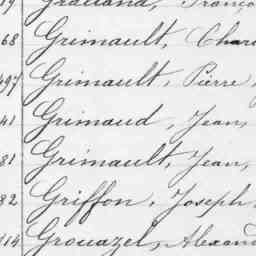 68 Grimault, Char
497 Grimault, Pierre,
41 Grimaud, Jean,
81 Grimault, Jean,
82 Griffon, Joseph,
114 Grouazel, Alexand